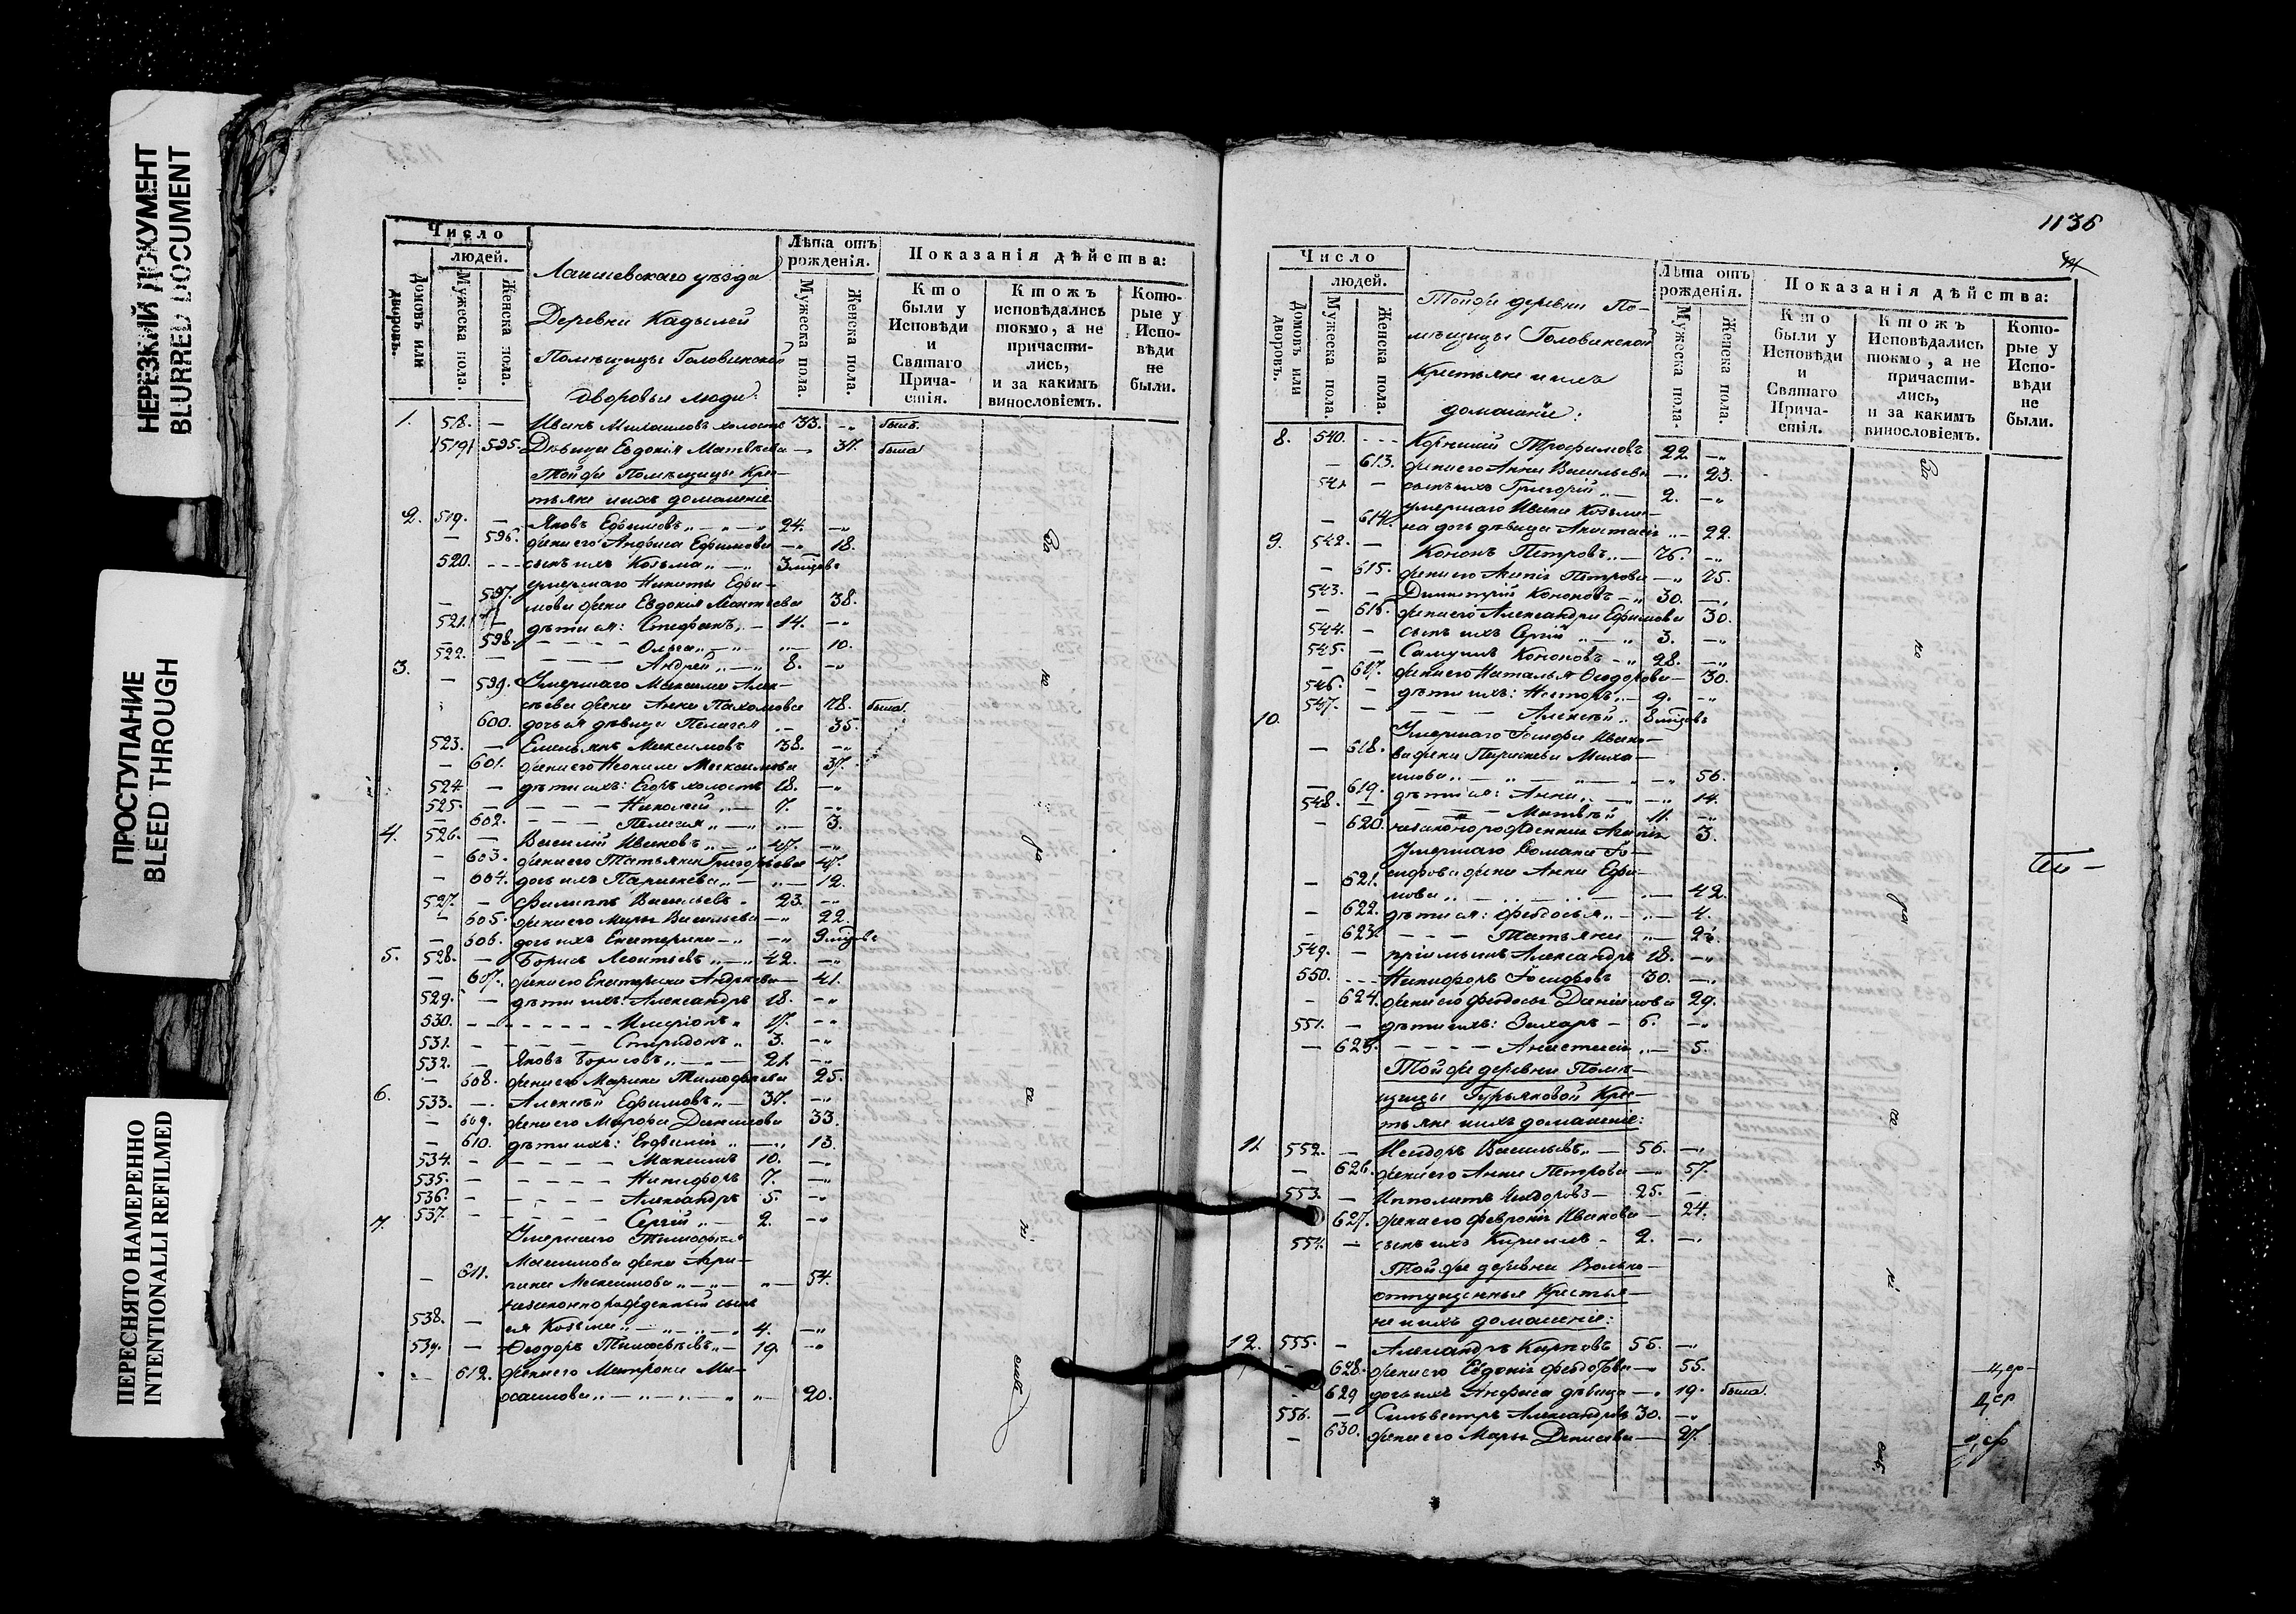 НЕРЕЗКИЙ ДОКУМЕНТ
BLURRED DOCUMENT
ПРОСТУПАНИЕ
BLEED THROUGH
ПЕРЕСНЯТО НАМЕРЕННО
INTENTIONALLI REFILMED
Число
людей.
Домовъ или дворовъ.
Мужеска пола.
Женска пола.
Лаишевскаго уѣзда
Деревни Кадылей
Помѣщицы Головинской
дворовыя люди:
Лѣта отъ рожденія.
Мужеска пола.
Женска пола.
Показанія дѣйства:
Кто были у Исповѣди и Святаго Прича- стія.
Ктожъ исповѣдались токмо, а не причасти- лись, и за какимъ винословіемъ.
Кото- рые у Испо- вѣди не были.
1. 518. — Иванъ Михаиловъ холостъ 33. —„ былъ.
595. Дѣвица Евдокія Матвѣева — 37. была
Той же Помѣщицы Кре-
стьяне и ихъ домашніе
2. 519. — Яковъ Ефимовъ „ — „ — „ 24. —„
— 596. жена его Анфиса Ефимова —„ 18.
520. --- сынъ ихъ Козьма „ — „ 3 мѣсцовъ
умершаго Никиты Ефи-
— 597. мова жена Евдокія Леонтьева 38.
521. — дѣти ея: Стефанъ „ — 14. —„
— 598. — — — Ольга „ — „ „— 10.
522. — — — — Андрей „ — „ 8. —„
3. — 599. Умершаго Максима Алек-
сѣева жена Анна Пахомова 78. была.
600. дочь ея дѣвица Пелагея „— 35.
523. — Емельянъ Максимовъ 38. —„
— 601. жена его Неонила Максимова 37.
524 — дѣти ихъ: Егоръ холостъ 18. —„
525. — — — — Николай „ — 7. —„
— 602. — — — — Пелагея „ — „ „— 3.
4. 526. — Василий Ивановъ „ — „ 47. —„
— 603. жена его Татьяна Григорьева 47.
— 604. дочь ихъ Параскева „ — „— 12.
527. — Филиппъ Васильевъ - 23. —„
— 605. жена его Марья Васильева —„ 22.
— 606. дочь ихъ Екатерина — „ —„ 9 мѣсцовъ
5. 528. — Борисъ Леонтьевъ „ — „ 42. —„
— 607. жена его Екатерина Андреева — 41.
529. — дѣти ихъ: Александръ 18. —„
530. — — — — — Иларіонъ „ 17. —„
531. — — — — Спиридонъ „ 3. —„
532. — Яковъ Борисовъ „ — „ — 21. —„
— 608. жена его Марина Тимофѣева 25.
6. 533. — Алексѣй Ефимовъ „ — 37. —„
— 609. жена его Марфа Данилова 33.
— 610. дѣти ихъ: Евфимія „ — „ 13.
534. — — — — — Максимъ 10. —„
535. — — — — — Никифоръ 7. —„
536. — — — — — Александръ 5. —„
537. — — — — — Сергій „ — 2. —„
7. Умершаго Тимофея
— 611. Максимова жена Агри-
пина Максимова „ — „ — „ — 54.
незаконнорожденный сынъ
538. — ея Козьма „ — „ — „ 4. —„
539. — Ѳеодоръ Тимофѣевъ „ — 19. —„
— 612. жена его Матрона Ми-
хаилова „ — „ — „ — „ „— 20.
За по ра зе ні емъ
1136
Число
людей.
Домовъ или дворовъ.
Мужеска пола.
Женска пола.
Той же деревни По-
мѣщицы Головинской
Крестьяне и ихъ
домашніе:
Лѣта отъ рожденія.
Мужеска пола.
Женска пола.
Показанія дѣйства:
Кто были у Исповѣди и Святаго Прича- стія.
Ктожъ Исповѣдались токмо, а не причасти- лись, и за какимъ винословіемъ.
Кото- рые у Испо- вѣди не были.
8. 540. --- Корнилій Трофимовъ 22. —„
— 613. жена его Анна Васильева —„ 23.
541. — сынъ ихъ Григорій „ — 2. —„
умершаго Ивана Козьми-
— 614. на дочь дѣвица Анастасія „— 22.
9. 542. — Кононъ Петровъ „ — 76. —„
— 615. жена его Агапія Петрова —„ 75.
543. — Димитрій Кононовъ — „ 30. —„
— 616. жена его Александра Ефимова 30.
544. — сынъ ихъ Сергій „ — „ 3. —„
545. — Самуилъ Кононовъ — „ 28. —„
— 617. жена его Наталья Ѳеодорова — 30.
546. — дѣти ихъ: Несторъ „ — 9. —„
547. — — — — Алексѣй „ 8 мѣсцовъ
10. Умершаго Іосифа Ивано-
— 618. ва жена Параскева Миха-
илова „ — „ — „ — „ —„ 56.
— 619. дѣти ея: Анна „ — „ —„ 14.
548. — — — — Матвѣй 11. —„
— 620. незаконорожденная Агапія 3.
Умершаго Романа Іо-
— 621. сифова жена Анна Ефи-
мова „ — „ — „ — „— 42.
— 622. дѣти ея: Ѳедосья „ — „— 4.
— 623. — — — Татьяна „— 2½.
549. — пріимышъ Александръ 18. —„
550. --- Никифоръ Іосифовъ 30. —„
— 624. жена его Ѳедосья Даніилова 29.
551. — дѣти ихъ: Захаръ — 6. —„
— 625. — — — — Анастасія „— 5.
Той же деревни Помѣ-
щицы Гурьяковой Кре-
стьяне и ихъ домашніе:
11. 552. — Исидоръ Васильевъ „ — 56. —„
— 626. жена его Анна Петрова —„ 57.
553. — Ипполитъ Исидоровъ — 25. —
627. жена его Февронія Иванова — 24.
554. — сынъ ихъ Кириллъ - 2. —„
Той же деревни Вольно-
отпущенныя Крестья-
не и ихъ домашніе:
12. 555. — Александръ Карповъ 55. —„
— 628. жена его Евдокія Ѳедорова —„ 55.
— 629 дочь ихъ Анфиса дѣвица —„ 19. была.
556. — Сильвестръ Александровъ 30. —„
— 630. жена его Марья Денисова — 27.
За по ра зе ні емъ